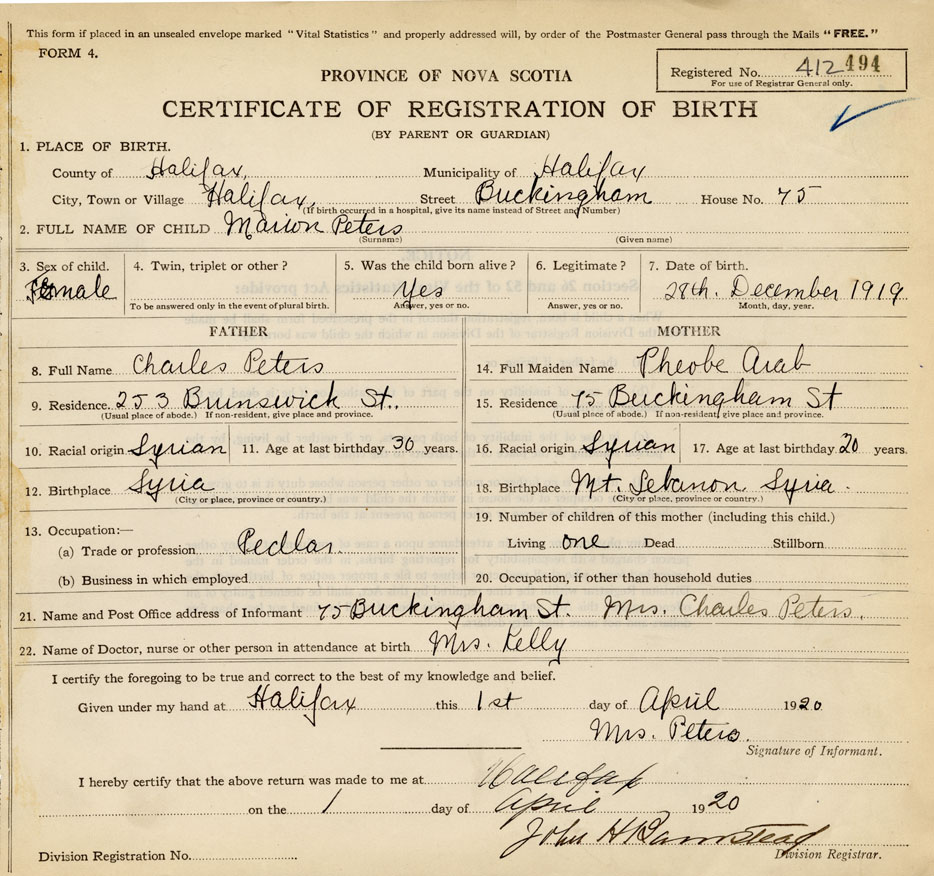 This form if placed in an unsealed envelope marked "Vital Statistics" and properly addressed will, by order of the Postmaster General pass through the Mails "FREE."
FORM 4.
Registered No. 412 494
For use of Registrar General only.
PROVINCE OF NOVA SCOTIA
CERTIFICATE OF REGISTRATION OF BIRTH
(BY PARENT OR GUARDIAN)
1. PLACE OF BIRTH.
County of Halifax, Municipality of Halifax
City, Town or Village Halifax, Street Buckingham House No. 75
(If birth occurred in a hospital, give its name instead of Street and Number)
2. FULL NAME OF CHILD Marion Peters
(Surname) (Given name)
3. Sex of child. 4. Twin, triplet or other? 5. Was the child born alive? 6. Legitimate? 7. Date of birth.
Female Yes 28th. December 1919
To be answered only in the event of plural birth. Answer, yes or no. Answer, yes or no. Month, day, year.
FATHER MOTHER
8. Full Name Charles Peters 14. Full Maiden Name Pheobe Arab
9. Residence. 253 Brunswick St., 15. Residence 75 Buckingham St
(Usual place of abode.) If non-resident, give place and province. (Usual place of abode.) If non-resident, give place and province.
10. Racial origin Syrian 11. Age at last birthday 30 years. 16. Racial origin Syrian 17. Age at last birthday. 20 years.
12. Birthplace Syria 18. Birthplace Mt. Lebanon Syria.
(City or place, province or country.) (City or place, province or country.)
13. Occupation:— 19. Number of children of this mother (including this child.)
(a) Trade or profession. Pedlar. Living one Dead Stillborn
(b) Business in which employed 20. Occupation, if other than household duties
21. Name and Post Office address of Informant 75 Buckingham St. Mrs. Charles Peters.
22. Name of Doctor, nurse or other person in attendance at birth Mrs. Kelly
I certify the foregoing to be true and correct to the best of my knowledge and belief.
Given under my hand at Halifax this 1st day of April 1920
Mrs. Peters.
Signature of Informant.
I hereby certify that the above return was made to me at Halifax
on the 1 day of April 1920
John H Barnstead
Division Registration No. Division Registrar.